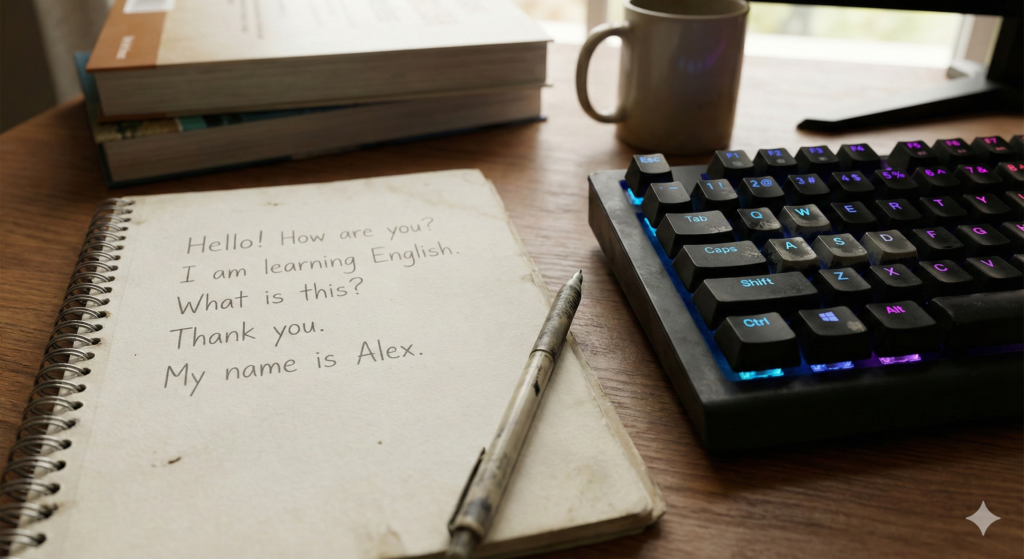 Hello! How are you?
I am learning English.
What is this?
Thank you.
My name is Alex.
Esc F1 F2 F3 F4 F5 F6 F7
1! 2@ 3# 4$ 5% 6^ 7&
Tab Q W E R T Y
Caps A S D F G
Shift Z X C V
Ctrl Alt